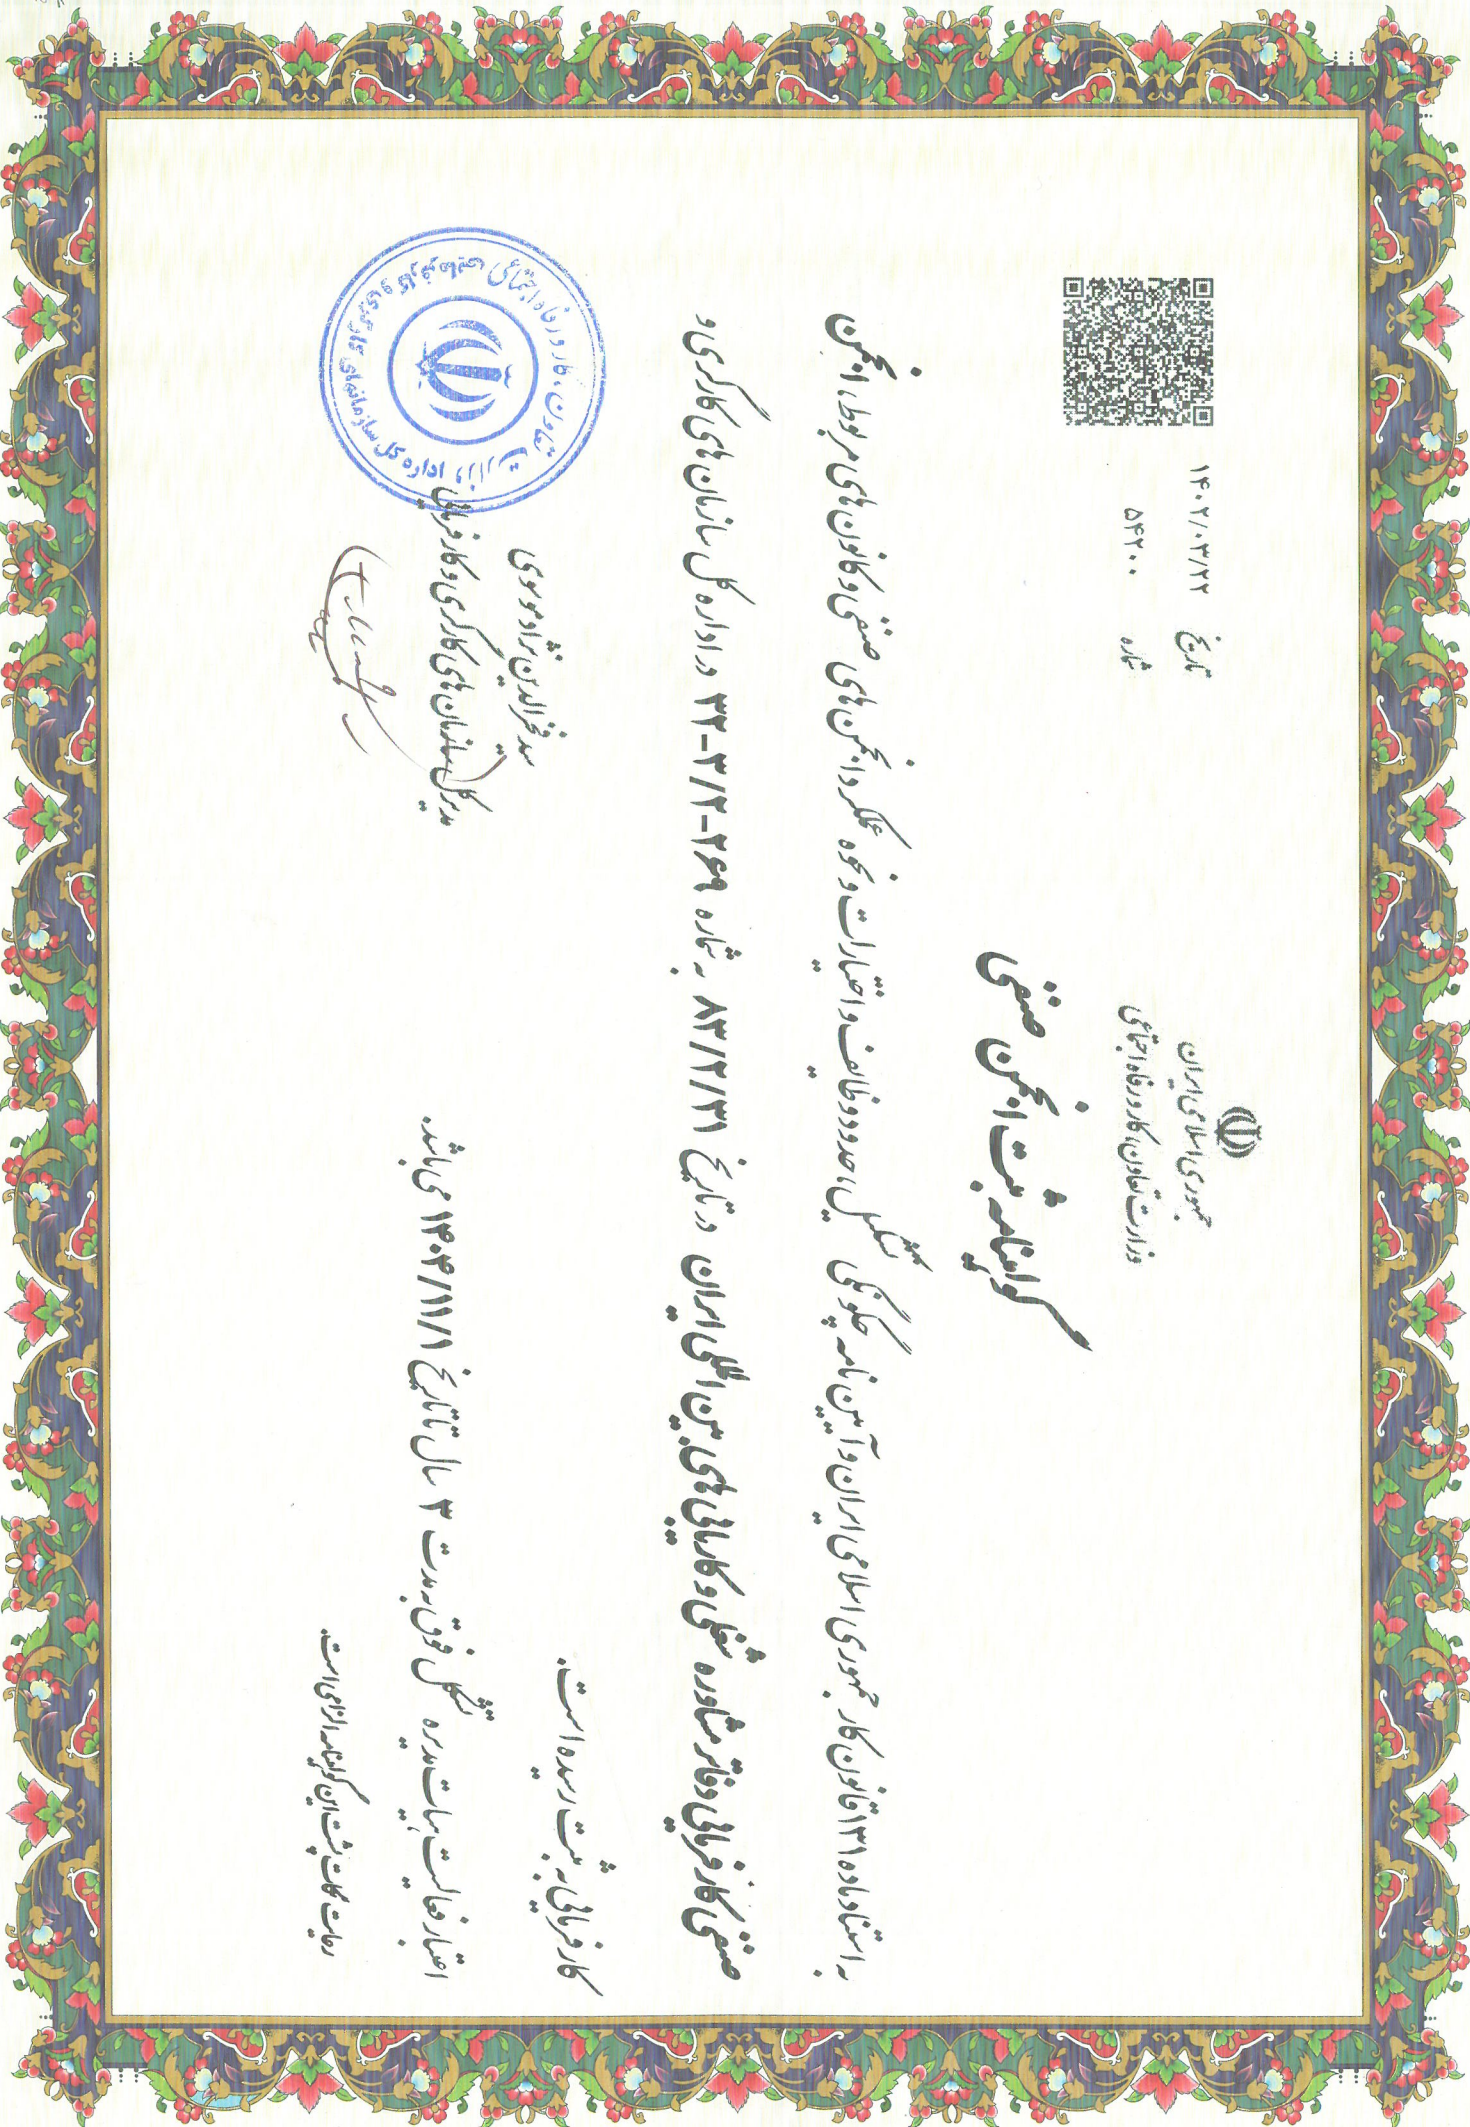 جمهوری اسلامی ایران
وزارت تعاون، کار و رفاه اجتماعی
تاریخ ۱۴۰۲/۰۳/۲۲
شماره ۵۴۲۰۰
گواهینامه ثبت انجمن صنفی
به استناد ماده ۱۳۱ قانون کار جمهوری اسلامی ایران و آیین نامه چگونگی تشکیل، حدود وظایف و اختیارات و نحوه عملکرد انجمن های صنفی و کانون های مربوط، انجمن
صنفی کارفرمایی دفاتر مشاوره شغلی و کاریابی های بین المللی ایران در تاریخ ۸۳/۲/۳۱ به شماره ۲۶۹-۳/۲-۳۲ در اداره کل سازمان های کارگری و
کارفرمایی به ثبت رسیده است.
اعتبار فعالیت هیات مدیره تشکل فوق به مدت ۳ سال تا تاریخ ۱۴۰۴/۱۱/۱ می باشد.
رعایت نکات پشت این گواهینامه الزامی است.
سید فخرالدین نژاد موسوی
مدیرکل سازمان های کارگری و کارفرمایی
وزارت تعاون، کار و رفاه اجتماعی
اداره کل سازمانهای کارگری و کارفرمایی